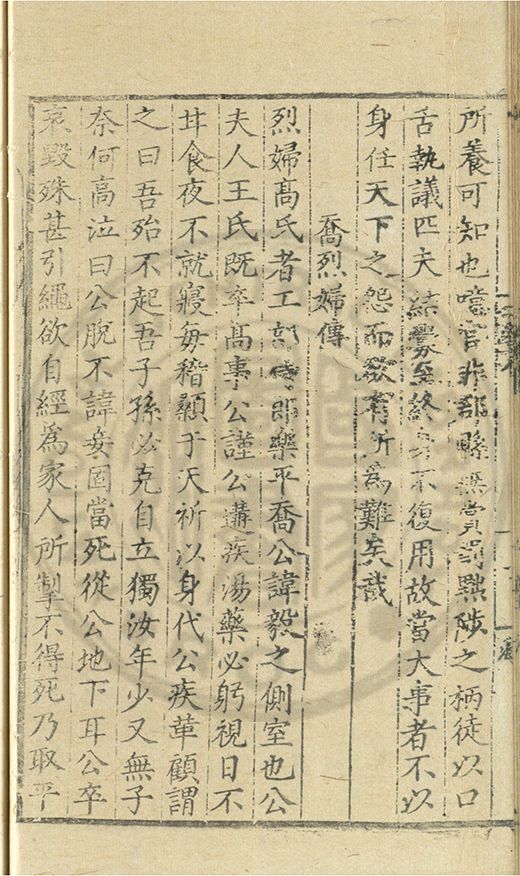 所養可知也噫官非部縣無賞罰黜陟之柄徒以口
舌執議匹夫結釁至終身不復用故當大事者不以
身任天下之怨而欲有所為難矣哉
喬烈婦傳
烈婦髙氏者工部侍郎樂平喬公諱毅之側室也公
夫人王氏既卒髙事公謹公遘疾湯藥必躬視日不
甘食夜不就寢每稽顙于天祈以身代公疾革顧謂
之曰吾殆不起吾子孫必克自立獨汝年少又無子
奈何高泣曰公脫不諱妾固當死從公地下耳公卒
哀毀殊甚引繩欲自經爲家人所掣不得死乃取平